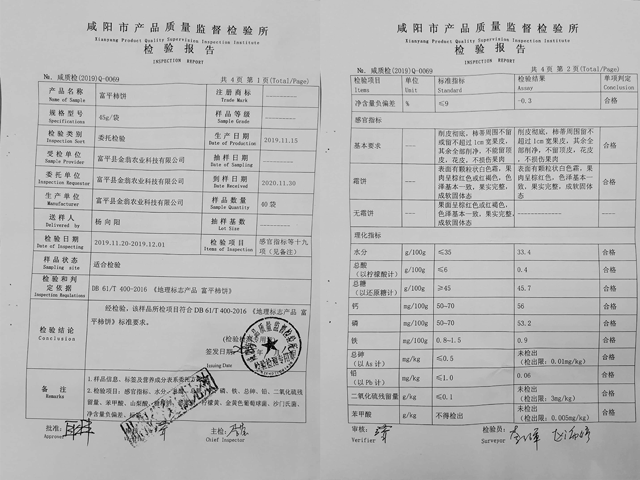 咸阳市产品质量监督检验所
Xianyang Product Quality Supervision Inspection Institute
检 验 报 告
INSPECTION REPORT
№. 咸质检(2019)Q-0069 共 4 页 第 1 页(Total/Page)
产品名称 Name of Sample 富平柿饼 注册商标 Trade Mark ----------
规格型号 Specifications 45g/袋 样品等级 Sample Grade ----------
检验类别 Inspection Sort 委托检验 生产日期 Date of Production 2019.11.15
受检单位 Sample Provider 富平县金翁农业科技有限公司 抽样日期 Date of Sampling ----------
委托单位 Inspection Requester 富平县金翁农业科技有限公司 到样日期 Date Received 2020.11.30
生产单位 Manufacturer 富平县金翁农业科技有限公司 样品数量 Sample Quantity 40 袋
送样人 Delivered by 杨向阳 抽样基数 Lot Size ----------
检验日期 Date of Inspecting 2019.11.20-2019.12.01 检验项目 Items of Inspection 感官指标等十九项(见备注)
样品状态 Sampling site 适合检验
检验和判定依据 Inspection Regulations DB 61/T 400-2016 《地理标志产品 富平柿饼》
检验结论 Conclusion
经检验,该样品所检项目符合 DB 61/T 400-2016 《地理标志产品 富平柿饼》标准要求。
签发日期
Issuing Date
备 注 Remarks
1. 样品信息、标签及营养成分表系委托
2. 检验项目:感官指标、水分、总酸
批准: Approver 主检: Chief Inspector
咸阳市产品质量监督检验所
Xianyang Product Quality Supervision Inspection Institute
检 验 报 告
INSPECTION REPORT
№. 咸质检(2019)Q-0069 共 4 页 第 2 页(Total/Page)
检验项目 Items 单位 Unit 标准指标 Standard 检验结果 Assay 单项判定 Conclusion
净含量负偏差 % ≤9 -0.3 合格
感官指标
基本要求 ---- 削皮彻底,柿蒂周围不留或留不超过 1cm 宽果皮,其余全部削净,不能留顶皮、花皮,不损伤果肉 削皮彻底,柿蒂周围留有不超过 1cm 宽果皮,其余全部削净,不留顶皮、花皮,不损伤果肉 合格
霜饼 ---- 表面有颗粒状白色霜,果肉呈棕红色或红褐色,色泽基本一致,果实完整,成软固体态 表面有颗粒状白色霜,果肉呈棕红色,色泽基本一致,果实完整,成软固体态 合格
无霜饼 ---- 果面呈棕红色或红褐色,色泽基本一致,果实完整,成软固体态 ---------- ----
理化指标
水分 g/100g ≤35 33.4 合格
总酸(以柠檬酸计) g/100g ≤6 0.4 合格
总糖(以还原糖计) g/100g ≥45 45.7 合格
钙 mg/100g 50-70 56 合格
磷 mg/100g 50-70 53.2 合格
铁 mg/100g 0.8-1.5 0.9 合格
总砷(以 As 计) mg/kg ≤0.5 未检出(检出限:0.01mg/kg) 合格
铅(以 Pb 计) mg/kg ≤1.0 0.06 合格
二氧化硫残留量 mg/kg ≤0.1 未检出(检出限:3mg/kg) 合格
苯甲酸 mg/kg 不得检出 未检出(检出限:0.005mg/kg) 合格
审核: Verifier 检验员: Surveyor